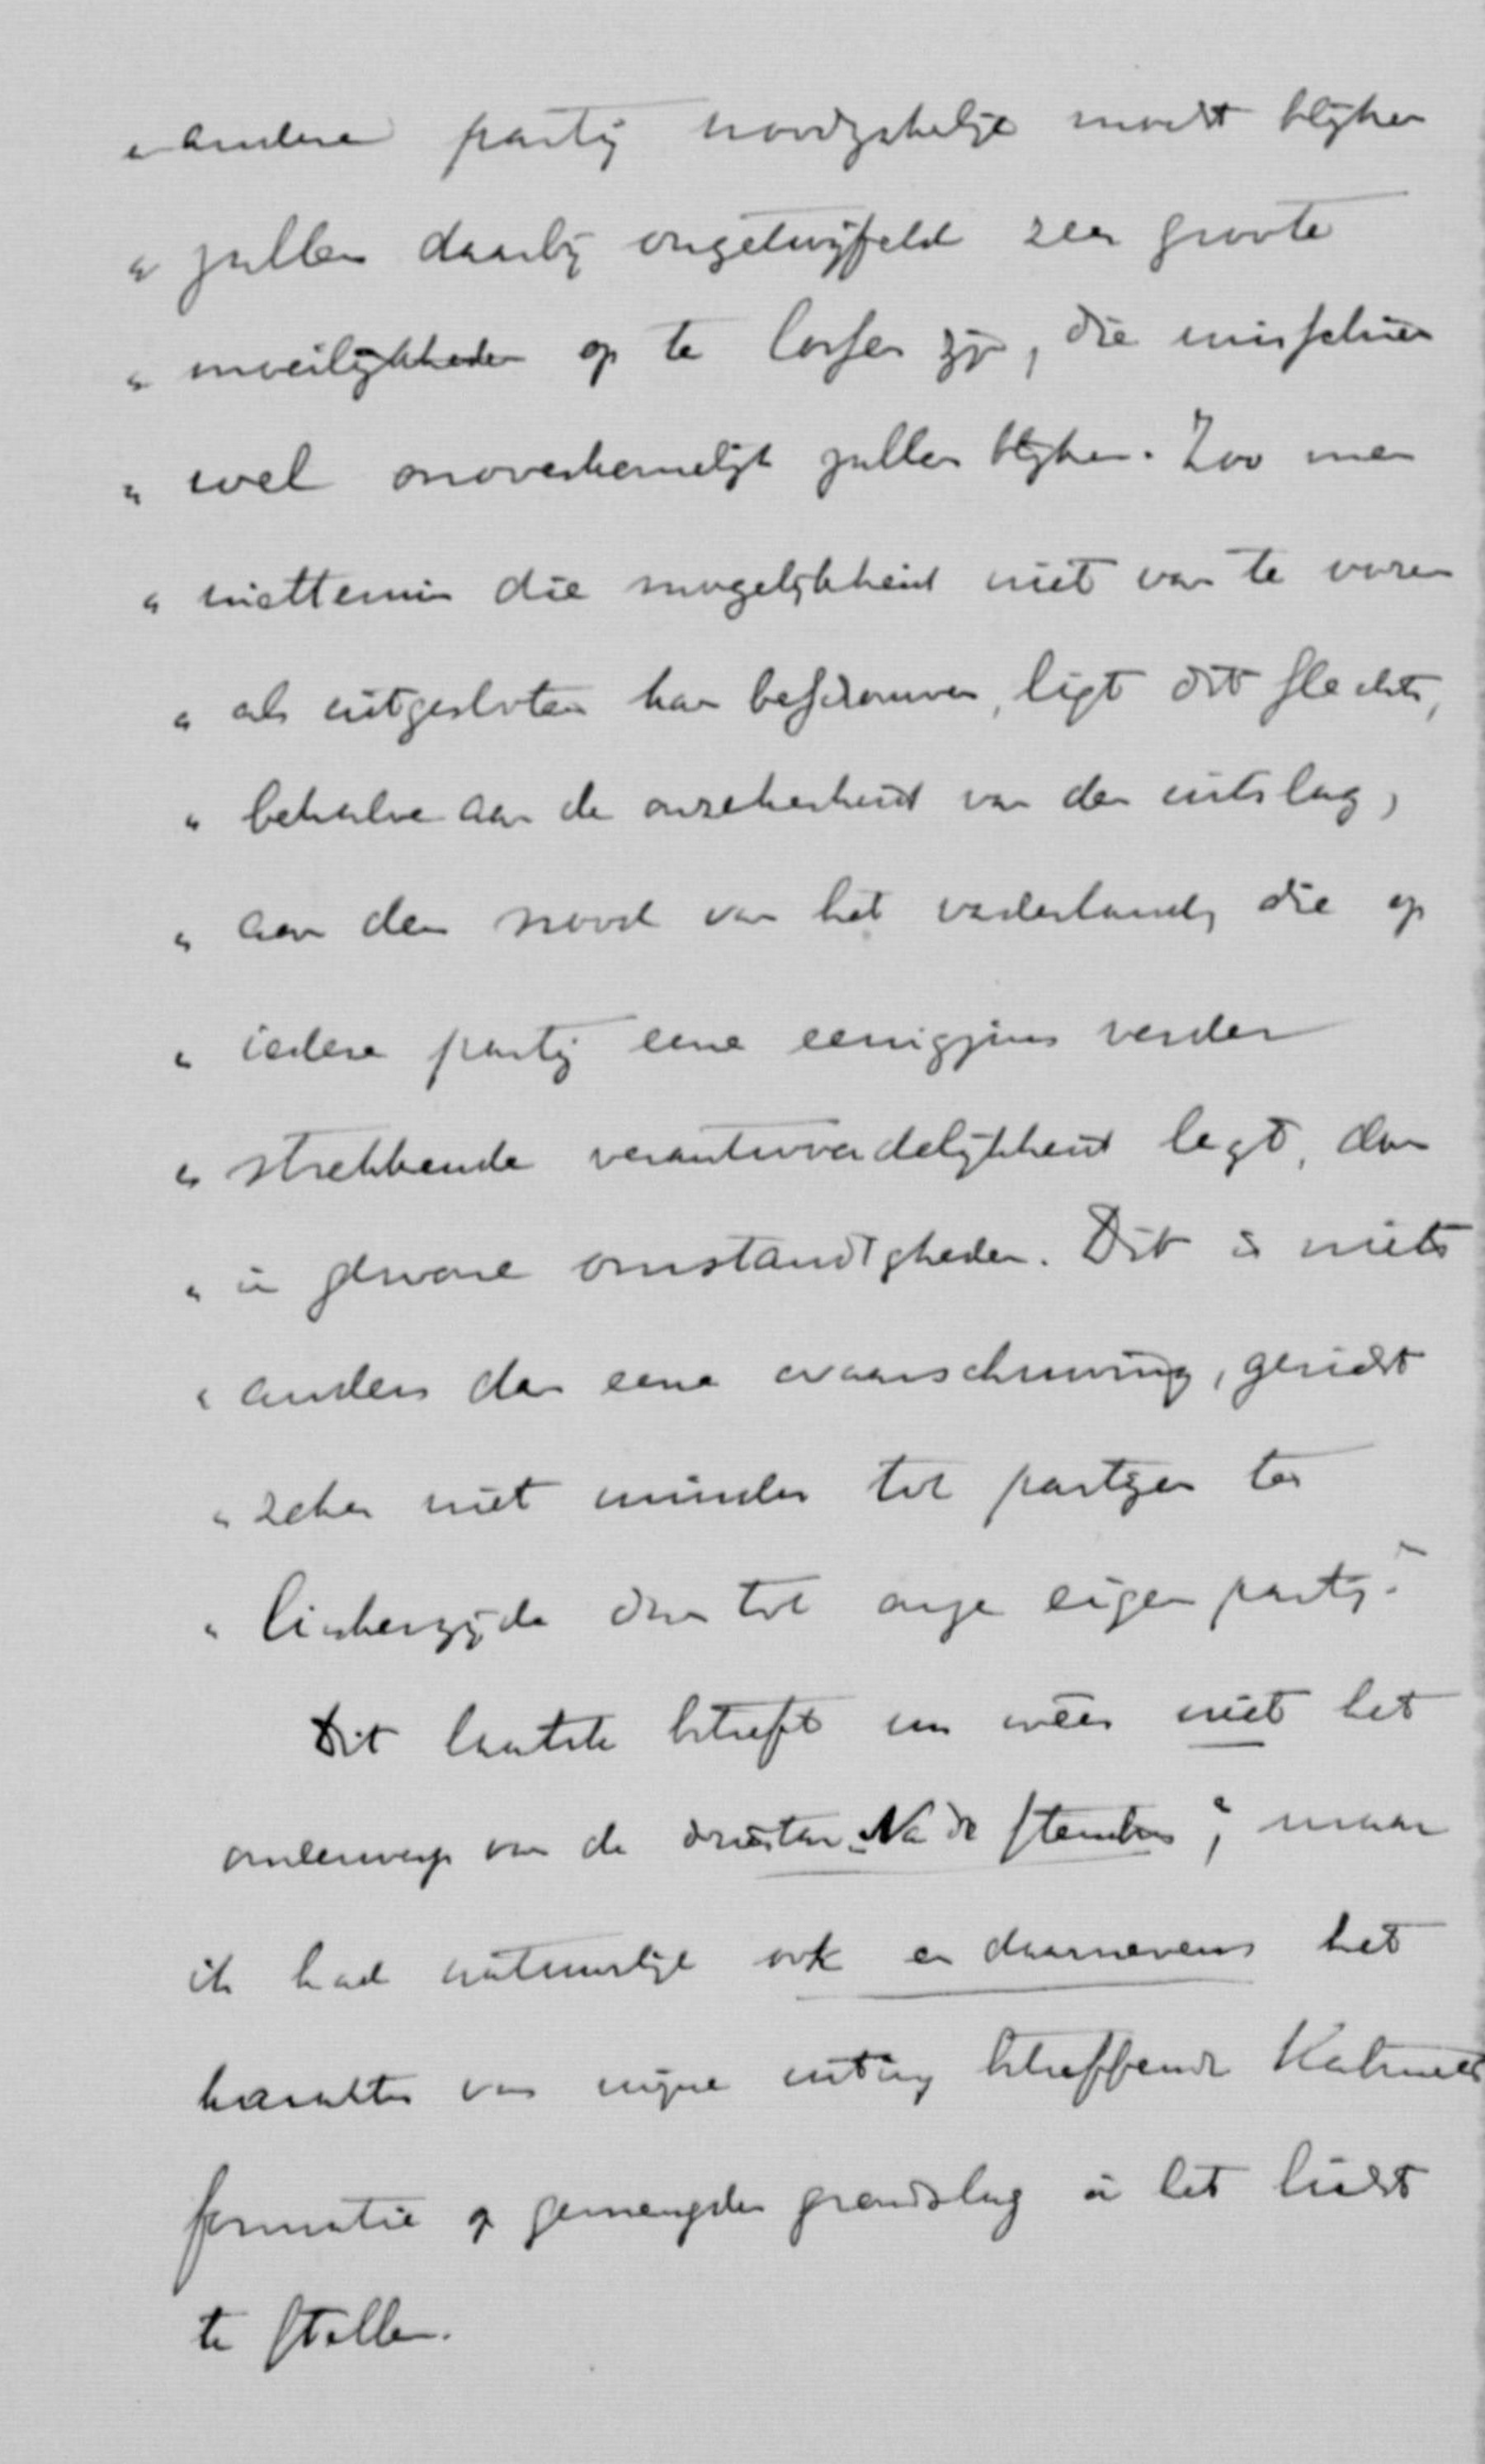 „ andere partij noodzakelijk mocht blijken
„ zullen daarbij ongetwijfeld zeer groote
„ moeilijkheden op te lossen zijn, die misschien
„ wel onoverkomelijk zullen blijken. Zoo men
„ niettemin die mogelijkheid niet van te voren
„ als uitgesloten kan beschouwen, ligt dit slechts,
„ behalve aan de onzekerheid van den uitslag,
„ aan den nood van het vaderland, die op
„ iedere partij eene eenigzins verder
„ strekkende verantwoordelijkheid legt, dan
„ in gewone omstandigheden. Dit is niets
„ anders dan eene waarschuwing, gericht
„ zeker niet minder tot partijen ter
„ linkerzijde dan tot onze eigen partij."
Dit laatste betreft nu wéér niet het
onderwerp van de driestar „Na de stembus"; maar
ik had natuurlijk ook en daarnevens het
karakter van mijne uiting betreffende Kabinets
formatie op gemengden grondslag in het licht
te stellen.